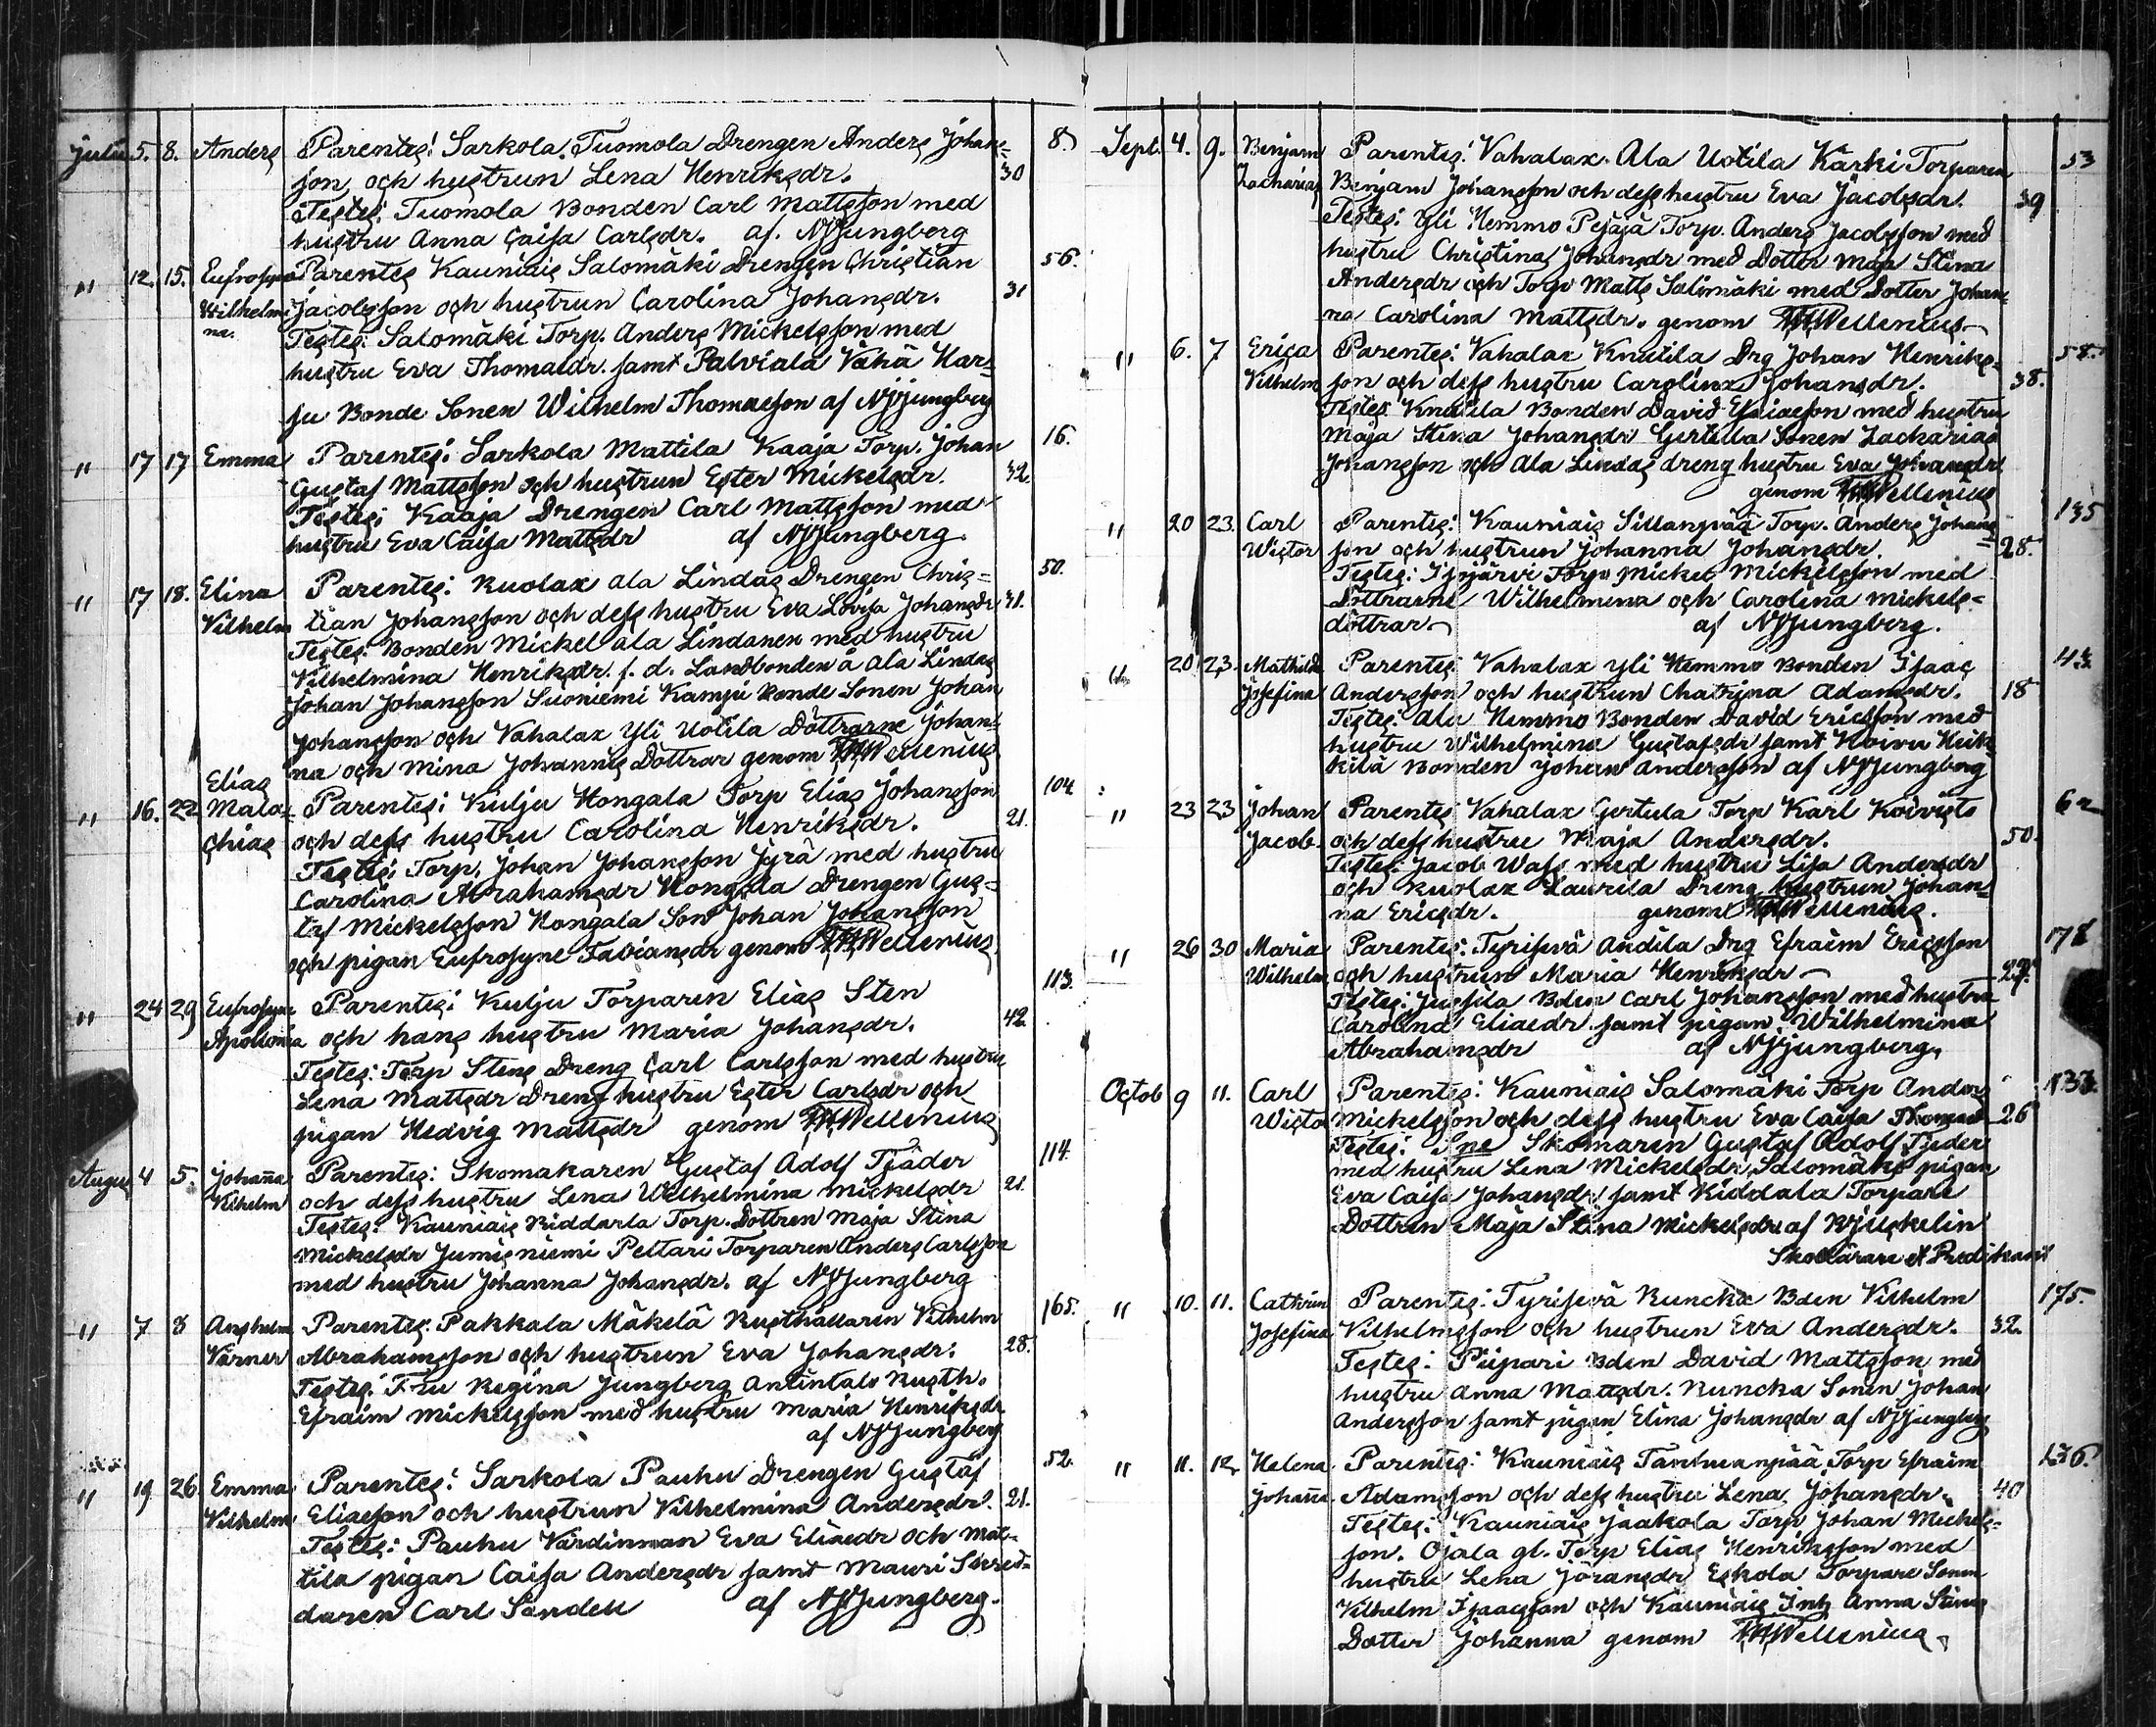 Julii 5. 8. Anders Parentes: Sarkola Tuomola Drengen Anders Johans= 8.
son och hustrun Lena Henriksdr. 30
Testes: Tuomola Bonden Carl Mattsson med
hustru Anna Caisa Carlsdr. af. NJjungberg
" 12. 15. Eufrosyna Parentes Kauniais Salomäki Drengen Christian 56.
Wilhelmi Jacobsson och hustrun Carolina Johansdr. 31
na. Testes: Salomäki Torp. Anders Mickelsson med
hustru Eva Thomasdr. samt Palviala Vähä Har=
ju Bonde Sonen Wilhelm Thomasson af NJjungberg
" 17 17 Emma Parentes: Sarkola Mattila Kaaja Torp. Johan 16.
Gustaf Mattsson och hustrun Ester Mickelsdr. 32.
Testes: Kaaja Drengen Carl Mattsson med
hustru Eva Caisa Mattsdr af NJjungberg.
" 17 18. Elina Parentes: Kuolax Ala Lindas Drengen Chris= 50.
Vilhelm tian Johansson och dess hustru Eva Lovisa Johansdr. 31.
Testes: Bonden Mickel Ala Lindanen med hustru
Vilhelmina Henriksdr. f. d. Landbonden å Ala Lindas
Johan Johansson Suoniemi Kamppi Bonde Sonen Johan
Johansson och Vahalax Yli Uotila Döttrarne Johan=
na och Mina Johannis Döttrar genom Wellenius.
" 16. 22 Elias Mala= Parentes: Kulju Hongala Torp Elias Johansson 104
chias och dess hustru Carolina Henriksdr. 21.
Testes: Torp. Johan Johansson Jyrä med hustru
Carolina Abrahamsdr Hongala Drengen Gus=
taf Mickelsson Hongala Son Johan Johansson
och pigan Eufrosyne Fabiansdr genom Wellenius.
" 24 29 Eufrosyne Parentes: Kulju Torparen Elias Sten 113.
Apollonia och hans hustru Maria Johansdr. 42.
Testes: Torp Stens Dreng Carl Carlsson med hustru
Lena Mattsdr Dreng hustru Ester Carlsdr och
pigan Hedvig Mattsdr genom Wellenius
Augus 4 5. Johaña Parentes: Skomakaren Gustaf Adolf Tjäder 114.
Vilhelm och dess hustru Lena Wilhelmina Mickelsdr 21.
Testes: Kauniais Riddarla Torp. Dottren Maja Stina
Mickelsdr Jumisniemi Peltari Torparen Anders Carlsson
med hustru Johanna Johansdr. af NJjungberg
" 7 8 Anshelm Parentes: Pakkala Mäkelä Rusthållaren Vilhelm 165.
Värner Abrahamsson och hustrun Eva Johansdr. 28.
Testes: Fru Regina Jungberg Anintalo Rusth.
Efraim Mickelsson med hustru Maria Henriksdr
af NJjungberg
" 19 26. Emma Parentes: Sarkola Pauhu Drengen Gustaf 52.
Vilhelm Eliasson och hustrun Vilhelmina Andersdr. 21.
Testes: Pauhu Värdinnan Eva Eliasdr och Mat=
tila pigan Caisa Andersdr samt Mauri Skred=
daren Carl Sandell af NJjungberg.
Sept. 4. 9. Benjam Parentes: Vahalax Ala Uotila Kärki Torparen 53
Zacharias Benjam Johansson och dess hustru Eva Jacobsdr. 39
Testes: Yli Hemmo Pejäjä Torp. Anders Jacobsson med
hustru Christina Johansdr med Dotter Maja Stina
Andersdr och Torp Matts Salomäki med Dotter Johan=
na Carolina Mattsdr. genom Wellenius
" 6. 7 Erica Parentes: Vahalax Knutila Drg Johan Henriks= 58.
Vilhelm son och dess hustru Carolina Johansdr. 38.
Testes Knutila Bonden David Esaiasson med hustru
Maja Stina Johansdr Gertulla Sonen Zackarias
Johansson och Ala Lindas dreng hustru Eva Johansdr
genom Wellenius
" 20 23. Carl Parentes: Kauniais Sillanpää Torp. Anders Johans= 135
Wictor son och hustrun Johanna Johansdr. 28.
Testes: Torp Mickel Mickelsson med
Döttrarne Wilhelmina och Carolina Mickels=
döttrar af NJjungberg.
" 20 23. Mathilda Parentes: Vahalax Yli Hemmo Bonden Isaac 43.
Josefina Andersson och hustrun Chatrina Adamsdr. 18
Testes: Ala Hemmo Bonden David Ericsson med
hustru Wilhelmina Gustafsdr samt Koivu Heik
kilä Bonden Johan Andersson af NJjungberg
" 23 23 Johan Parentes Vahalax Gertula Torp Karl Koivisto 62
Jacob. och dess hustru Maja Andersdr. 50.
Testes: Jacob Wass med hustru Lisa Andersdr
och Kuolax Laurila Dreng hustrun Johan=
na Ericsdr. genom Wellenius.
" 26 30 Maria Parentes: Tyrisevä Andila Drg Efraim Ericsson 178
Wilhelm och hustrun Maria Henriksdr 29.
Testes: Jussila Bden Carl Johansson med hustru
Carolina Eliasdr samt pigan Wilhelmina
Abrahamsdr af NJjungberg.
Octob 9 11. Carl Parentes: Kauniais Salomäki Torp Anders 133.
Victo Mickelsson och dess hustru Eva Caisa Thomasd 26
Testes: Sne Skomaren Gustaf Adolf Tjäder
med hustru Lena Mickelsdr, Salomäki pigan
Eva Caisa Johansdr samt Riddala Torpare
Dottren Maja Stina Mickelsdr af Kjuskelin
Skollärare & Predikant
" 10. 11. Cathrin Parentes: Tyrisevä Runcka Bden Vilhelm 175.
Josefina Vilhelmsson och hustrun Eva Andersdr. 32.
Testes: Piipari Bden David Mattsson med
hustru Anna Mattsdr. Runcka Sonen Johan
Andersson samt pigan Elina Johansdr af NJjungberg
" 11. 12. Helena Parentes: Kauniais Tanhuanpää Torp Efraim 136.
Johaña. Adamsson och dess hustru Lena Johansdr. 40
Testes: Kauniais Jaakola Torp Johan Michels=
son. Ojala gl. Torp Elias Henriksson med
hustru Lena Göransdr Eskola Torpare Sonen
Vilhelm Isaacsson och Kauniais Inh Anna Stinas
Dotter Johanna genom Wellenius